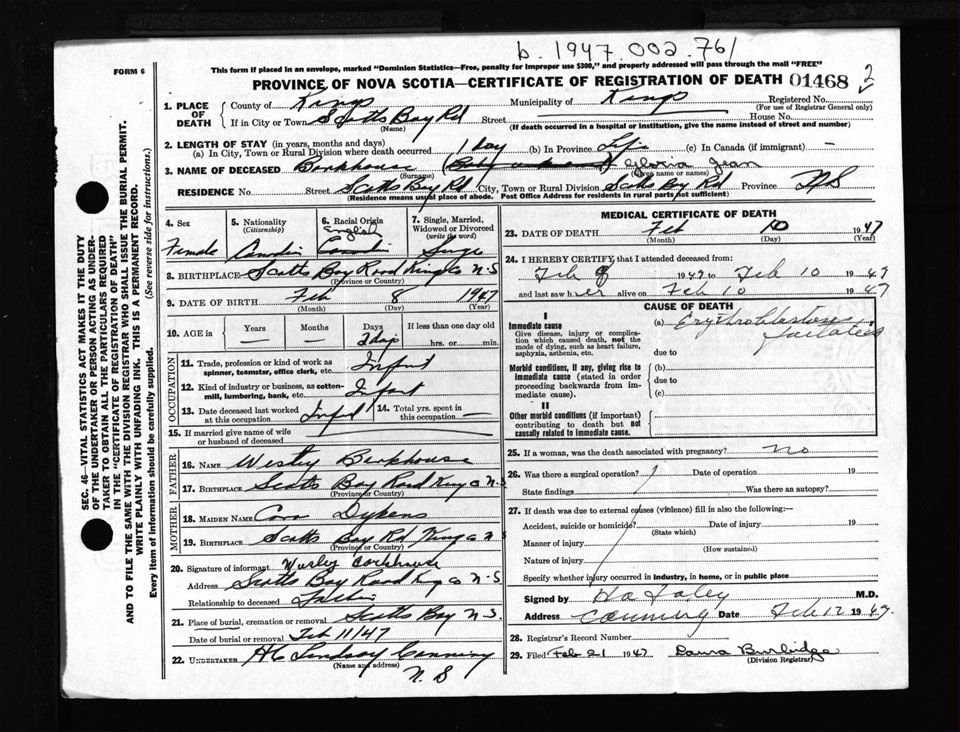 b. 1947.002.761
FORM 6
This form if placed in an envelope, marked "Dominion Statistics—Free, penalty for improper use $300," and properly addressed will pass through the mail "FREE"
PROVINCE OF NOVA SCOTIA—CERTIFICATE OF REGISTRATION OF DEATH 01468 2
SEC. 46—VITAL STATISTICS ACT MAKES IT THE DUTY
OF THE UNDERTAKER OR PERSON ACTING AS UNDER-
TAKER TO OBTAIN ALL THE PARTICULARS REQUIRED
IN THE "CERTIFICATE OF REGISTRATION OF DEATH"
AND TO FILE THE SAME WITH THE DIVISION REGISTRAR WHO SHALL ISSUE THE BURIAL PERMIT.
WRITE PLAINLY WITH UNFADING INK. THIS IS A PERMANENT RECORD.
Every item of information should be carefully supplied. (See reverse side for instructions.)
1. PLACE OF DEATH County of Kings Municipality of Kings Registered No.
(For use of Registrar General only)
If in City or Town Scotts Bay Rd Street House No.
(Name) (If death occurred in a hospital or institution, give the name instead of street and number)
2. LENGTH OF STAY (in years, months and days)
(a) In City, Town or Rural Division where death occurred 1 day (b) In Province Life (c) In Canada (if immigrant) —
3. NAME OF DECEASED Barkhouse (Baby) Gloria Jean
(Surname) (Given name or names)
RESIDENCE No. Street Scotts Bay Rd City, Town or Rural Division Scotts Bay Rd Province NS
(Residence means usual place of abode. Post Office Address for residents in rural parts not sufficient)
4. Sex Female
5. Nationality (Citizenship) Canadian
6. Racial Origin English
7. Single, Married, Widowed or Divorced (write the word) Single
8. BIRTHPLACE Scotts Bay Road Kings Co N-S
(Province or Country)
9. DATE OF BIRTH Feb 8 1947
(Month) (Day) (Year)
10. AGE in Years Months Days 2 days If less than one day old hrs. or min.
OCCUPATION
11. Trade, profession or kind of work as spinner, teamster, office clerk, etc. Infant
12. Kind of industry or business, as cotton-mill, lumbering, bank, etc. Infant
13. Date deceased last worked at this occupation Infant 14. Total yrs. spent in this occupation —
15. If married give name of wife or husband of deceased
FATHER
16. NAME Wesley Barkhouse
17. BIRTHPLACE Scotts Bay Road King Co N-S
(Province or Country)
MOTHER
18. MAIDEN NAME Cora Dykens
19. BIRTHPLACE Scotts Bay Rd King Co N S
(Province or Country)
20. Signature of informant Wesley Barkhouse
Address Scotts Bay Road King Co N-S
Relationship to deceased Father
21. Place of burial, cremation or removal Scotts Bay N S.
Date of burial or removal Feb 11/47
22. UNDERTAKER HC Lindsay Canning
(Name and address)
N. S
MEDICAL CERTIFICATE OF DEATH
23. DATE OF DEATH Feb 10 1947
(Month) (Day) (Year)
24. I HEREBY CERTIFY that I attended deceased from:
Feb 9 1947 to Feb 10 1947
and last saw her alive on Feb 10 1947
CAUSE OF DEATH
I
Immediate cause
Give disease, injury or complication which caused death, not the mode of dying, such as heart failure, asphyxia, asthenia, etc.
(a) Erythroblastosis
due to
Morbid conditions, if any, giving rise to immediate cause (stated in order proceeding backwards from immediate cause).
(b)
due to
(c)
II
Other morbid conditions (if important) contributing to death but not causally related to immediate cause.
25. If a woman, was the death associated with pregnancy? no
26. Was there a surgical operation? Date of operation 19
State findings Was there an autopsy?
27. If death was due to external causes (violence) fill in also the following:—
Accident, suicide or homicide? Date of injury 19
(State which)
Manner of injury
(How sustained)
Nature of injury
Specify whether injury occurred in industry, in home, or in public place
Signed by Foley M.D.
Address Canning Date Feb 12 1947.
28. Registrar's Record Number
29. Filed Feb 21 1947 Laura Burbidge
(Division Registrar)